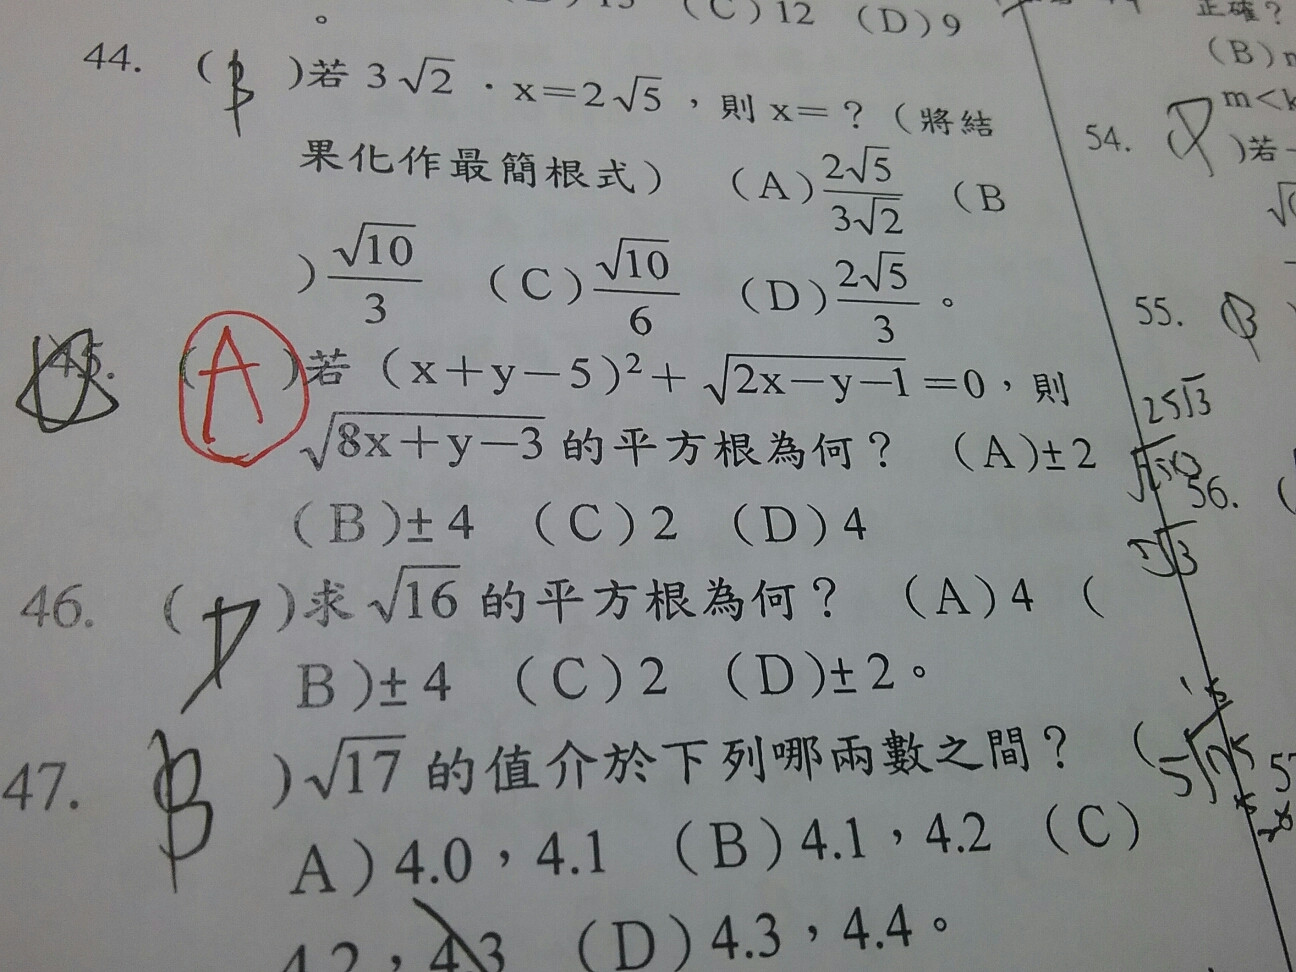 。
(C)12 (D)9
44. (B)若 3√2 · x=2√5，則 x=？（將結
果化作最簡根式） (A) 2√5/3√2 (B
) √10/3 (C) √10/6 (D) 2√5/3 。
45. (A)若 (x+y−5)²+√(2x−y−1)=0，則
√(8x+y−3) 的平方根為何？ (A)±2
(B)±4 (C)2 (D)4
46. (D)求 √16 的平方根為何？ (A)4 (
B)±4 (C)2 (D)±2。
47. (B)√17 的值介於下列哪兩數之間？ (
A)4.0，4.1 (B)4.1，4.2 (C)
4.2，4.3 (D)4.3，4.4。
正確？
(B)
m<k
54. )若
55.
25√3
56.